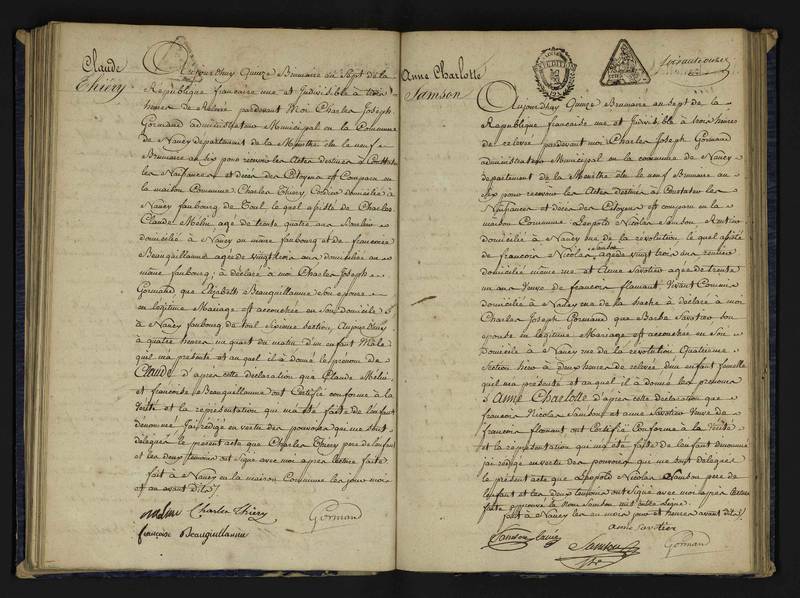 Claude
Thiéry
Aujourdhuy Quinze Brumaire an Sept de la
République française une et Indivisible à trois
heures de Relevée pardevant Moi Charles Joseph
Gormand administrateur Municipal en la Commune
de Nancy departement de la Meurthe élu le neuf
Brumaire an six pour recevoir les Actes destinés à Constater
les Naissances et décès des Citoyens est Comparu en
la maison Commune Charles Thiery Cordier domicilié à
Nancy faubourg de Toul le quel assisté de Charles
Claude Mélin agé de trente quatre ans
domicilié à Nancy au même faubourg et de françoise
Beauguillaume agée de vingt trois ans domiciliée au
même faubourg; à déclaré à moi Charles Joseph
Gormand, que Elizabeth Beauguillaume Son epouse
en légitime Mariage est accouchée en Son Domicile
à Nancy faubourg de toul Sixieme section, Aujourdhuy
à quatre heures un quart du matin d'un Enfant Male
quil ma présenté et au quel il a donné le prénom de
Claude d'après cette déclaration que Claude Mélin
et françoise Beauguillaume ont Certifié conforme à la
Vérité et la représentation qui m'a été faite de l'enfant
denommé j'ai rédigé en vertu des pouvoirs qui me sont
délégués le présent acte que Charles Thiery pere de l'enfant
et les deux témoins ont Signé avec moi après lecture faite
fait à Nancy en la maison Commune les jour mois
et an avant dits
melin Charles Thiery Gormand
françoise Beauguillaume
Anne Charlotte
Samson
Aujourdhuy Quinze Brumaire an sept de la
République française une et Indivisible à trois heures
de relevée pardevant moi Charles Joseph Gormand
administrateur Municipal en la commune de Nancy
departement de la Meurthe élu le neuf Brumaire an
Six pour recevoir les Actes destinés à Constater les
Naissances et décès des Citoyens est comparu en la
maison Commune Léopold Nicolas Samson Rentier
domicilié à Nancy rue de la révolution le quel assisté
de francois Nicolas Samson agé de vingt trois ans rentier
domicilié même rue et Anne Savotier agée de trente
un ans Veuve de francois flomant Vivant Commis
domiciliée à Nancy rue de la hache à déclaré à moi
Charles Joseph Gormand que Barbe Savotier son
epouse en légitime Mariage est accouchée en Son
Domicile à Nancy rue de la révolution Quatrieme
Section hier à deux heures de relevée d'un enfant femelle
quil m'a présenté et au quel il à donné les prénoms
d'Anne Charlotte d'après cette déclaration que
francois Nicolas Samson et anne Savotier Veuve de
francois flomant ont Certifié Conforme à la Verité
et la représentation qui m'a été faite de l'enfant denommé
j'ai rédigé en vertu des pouvoirs qui me sont délégués
le présent acte que Léopold Nicolas Samson pere de
l'enfant et les deux temoins ont Signé avec moi après lecture
faite approuvé le nom Samson
fait à Nancy les an mois jour et heures avant dits
anne Savotier
Samson Samson Gormand